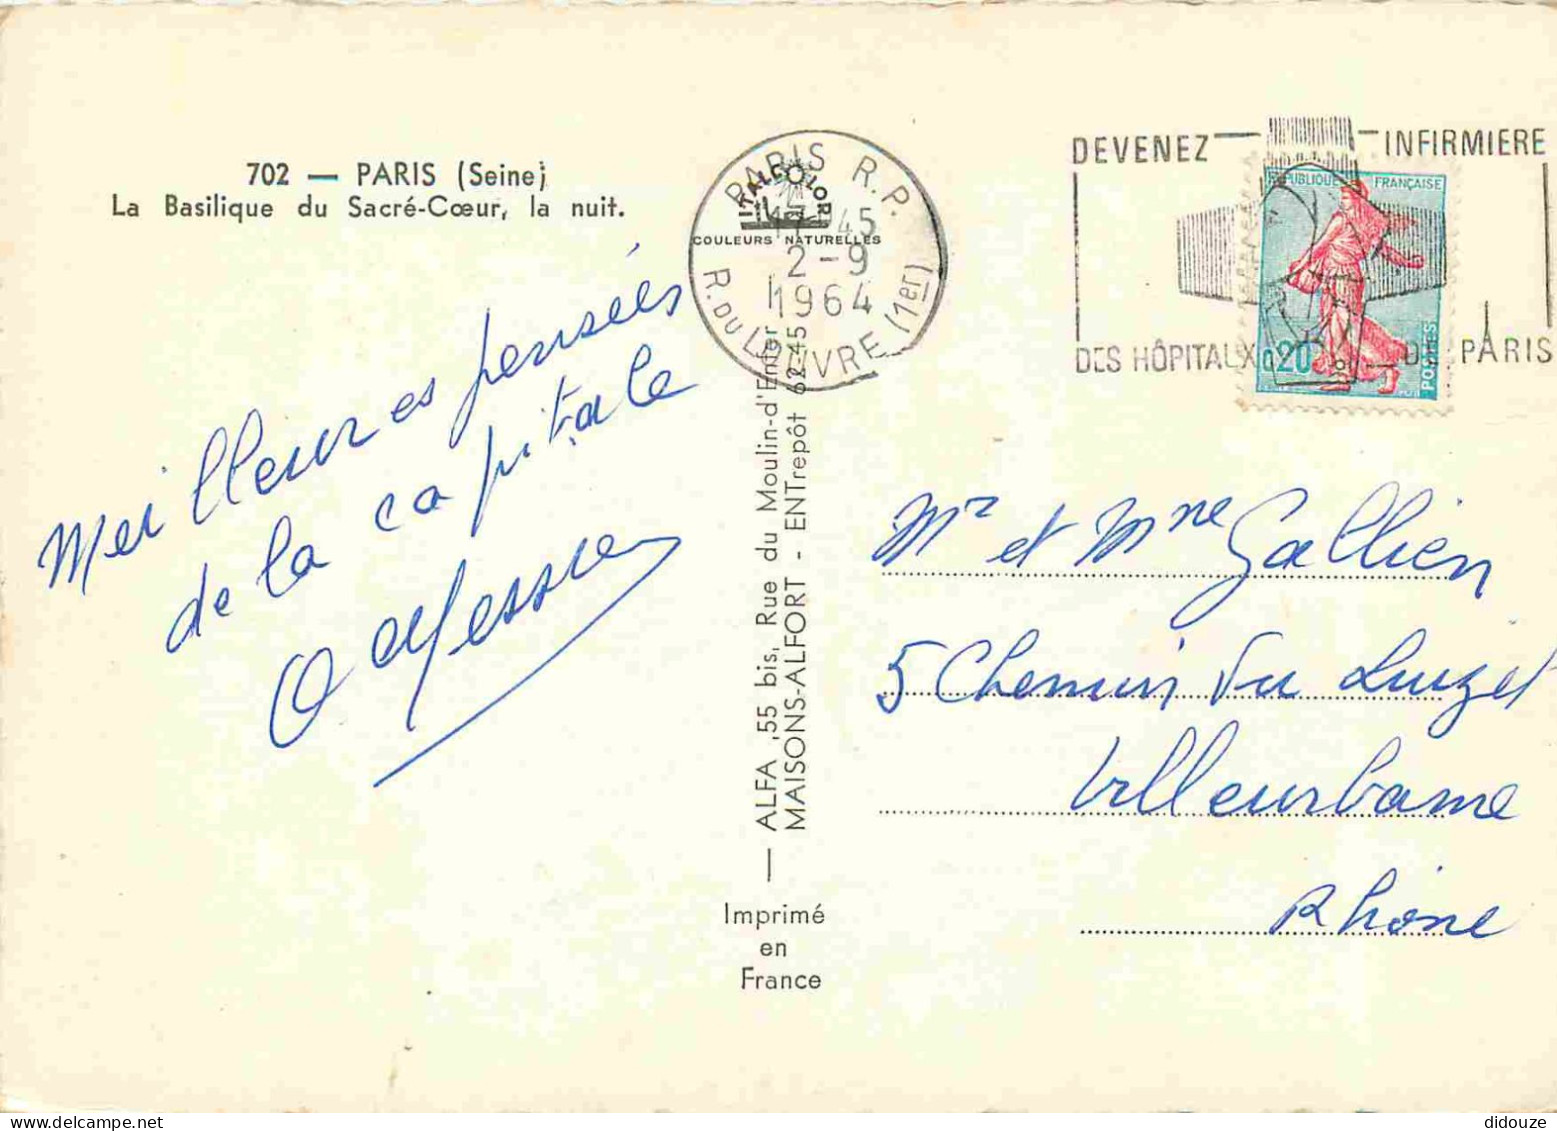 702 — PARIS (Seine)
La Basilique du Sacré-Cœur, la nuit.
Meilleures pensées
de la capitale
PARIS R.P.
17H45
2-9
1964
R. DU LOUVRE (1er)
ITALCOLOR
COULEURS NATURELLES
DEVENEZ INFIRMIERE
DES HÔPITAUX DE PARIS
REPUBLIQUE FRANÇAISE
0,20
POSTES
— ALFA ,55 bis, Rue du Moulin-d'Enfer
MAISONS-ALFORT - ENTrepôt 62-45
Imprimé
en
France
Mr et Mme Gallien
5 Chemin du Luizet
Villeurbanne
Rhône
didouze